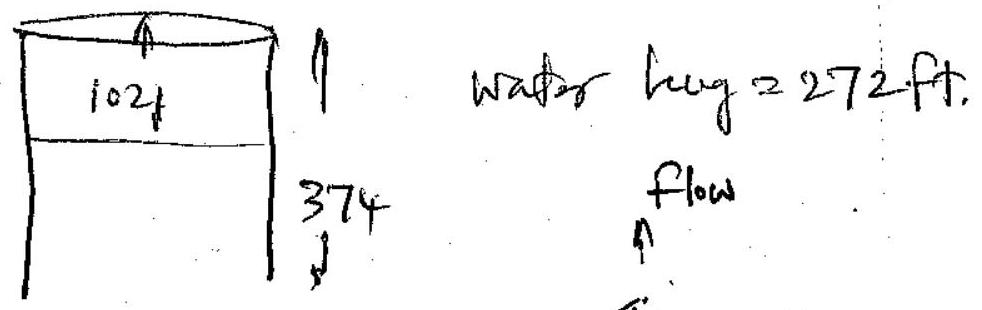 102f
374
water hug = 272 ft.
flow